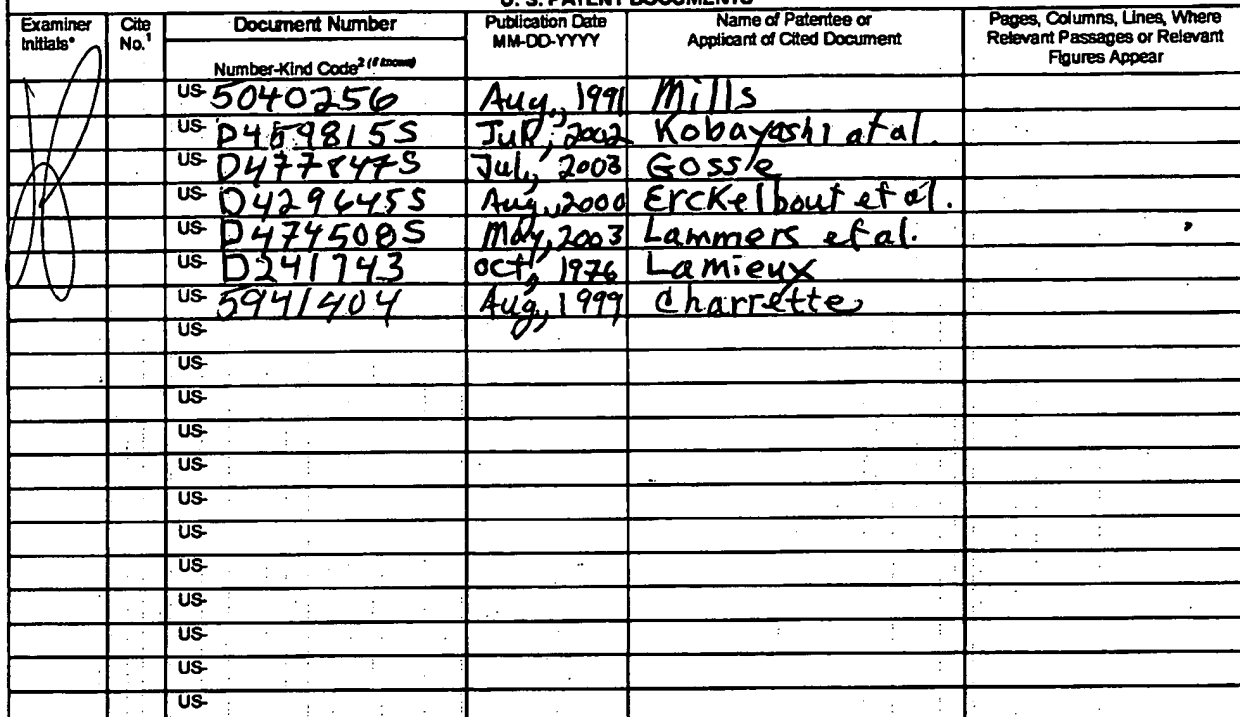 U. S. PATENT DOCUMENTS
Examiner Initials* Cite No.1 Document Number Publication Date MM-DD-YYYY Name of Patentee or Applicant of Cited Document Pages, Columns, Lines, Where Relevant Passages or Relevant Figures Appear
Number-Kind Code2 (if known)
US- 5040256 Aug., 1991 Mills
US- D459815S Jul., 2002 Kobayashi et al.
US- D477847S Jul., 2003 Gossle
US- D429645S Aug., 2000 Erckelbout et al.
US- D474508S May, 2003 Lammers et al.
US- D241743 oct., 1976 Lamieux
US- 5941404 Aug., 1999 Charrette
US-
US-
US-
US-
US-
US-
US-
US-
US-
US-
US-
US-